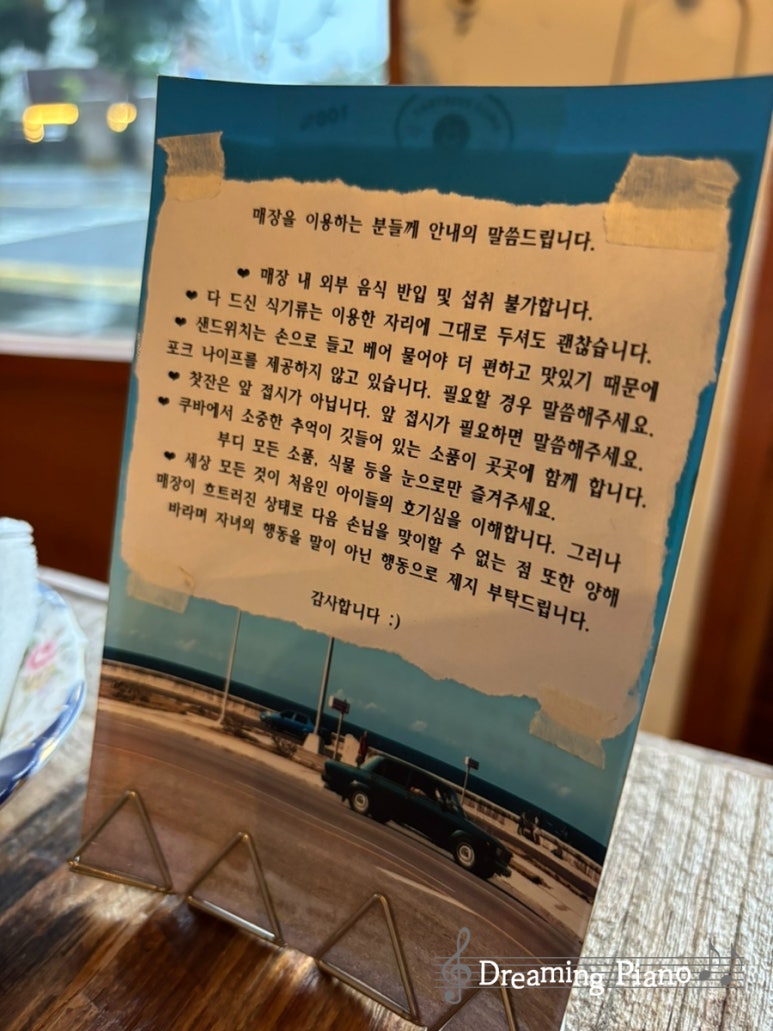 매장을 이용하는 분들께 안내의 말씀드립니다.
❤ 매장 내 외부 음식 반입 및 섭취 불가합니다.
❤ 다 드신 식기류는 이용한 자리에 그대로 두셔도 괜찮습니다.
❤ 샌드위치는 손으로 들고 베어 물어야 더 편하고 맛있기 때문에
포크 나이프를 제공하지 않고 있습니다. 필요할 경우 말씀해주세요.
❤ 찻잔은 앞 접시가 아닙니다. 앞 접시가 필요하면 말씀해주세요.
❤ 쿠바에서 소중한 추억이 깃들어 있는 소품이 곳곳에 함께 합니다.
부디 모든 소품, 식물 등을 눈으로만 즐겨주세요.
❤ 세상 모든 것이 처음인 아이들의 호기심을 이해합니다. 그러나
매장이 흐트러진 상태로 다음 손님을 맞이할 수 없는 점 또한 양해
바라며 자녀의 행동을 말이 아닌 행동으로 제지 부탁드립니다.
감사합니다 :)
Dreaming Piano